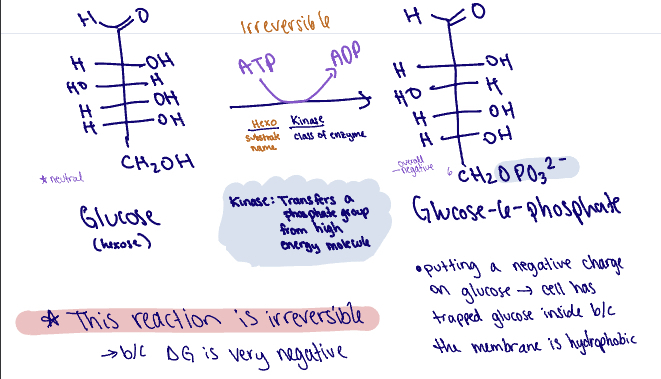 H O
H OH
HO H
H OH
H OH
CH₂OH
* neutral
Glucose
(hexose)
Irreversible
ATP ADP
Hexo Kinase
substrate name
class of enzyme
Kinase: Transfers a
phosphate group
from high
energy molecule
H O
H OH
HO H
H OH
H OH
overall
-negative
6 CH₂OPO₃²⁻
Glucose-6-phosphate
• putting a negative charge
on glucose → cell has
trapped glucose inside b/c
the membrane is hydrophobic
* This reaction is irreversible
→ b/c ΔG is very negative